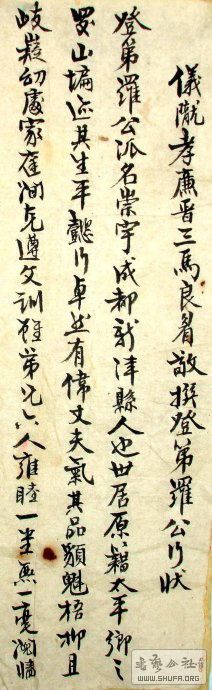 儀隴孝廉晋三馬良看敬撰登第羅公行状
登第羅公派名崇宇成都新津縣人也世居原籍太平鄉之
羅山迹其生平懿行卓然有偉丈夫氣其品䫉魁梧抑且
岐嶷幼處家庭間克遵父訓雖弟兄六人雍睦一堂無一毫鬩牆
書藝公社
WWW.SHUFA.ORG